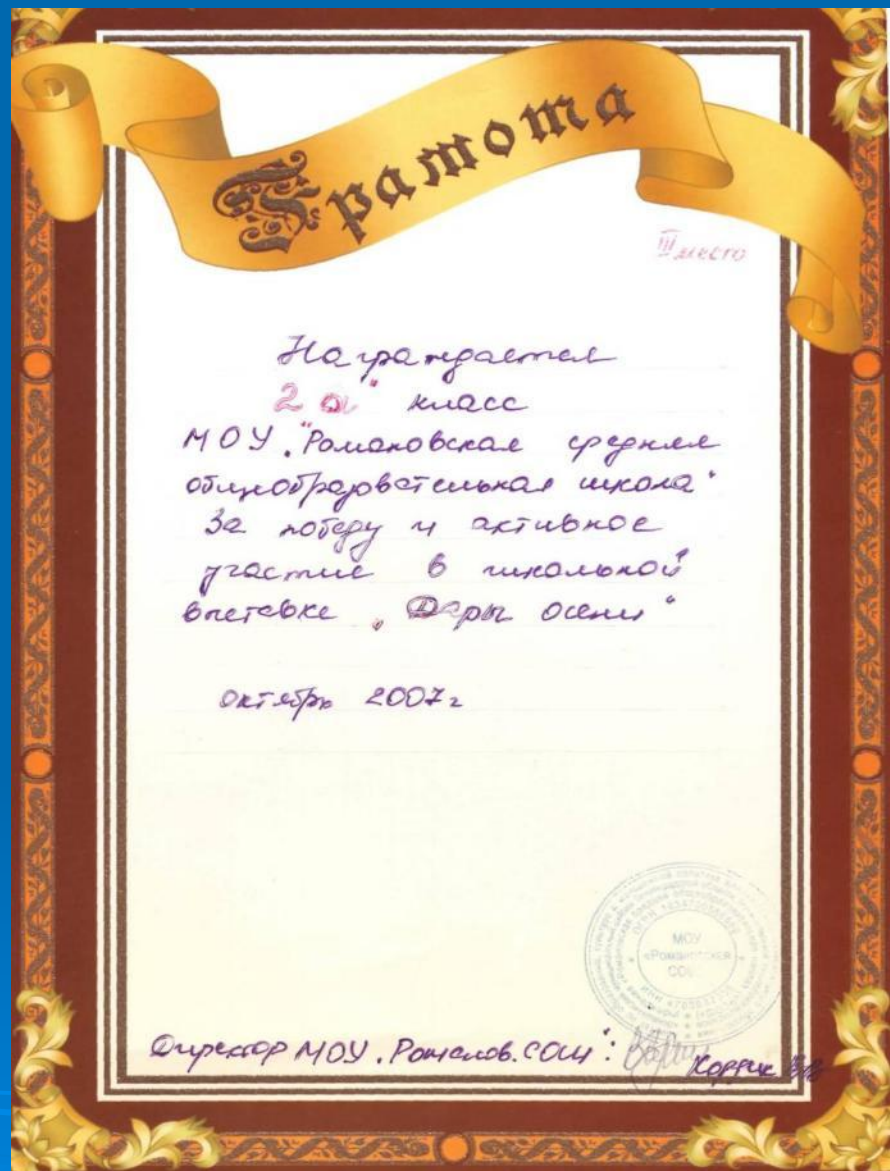 Грамота
III место
Награждается
2 "а" класс
МОУ "Романовская средняя
общеобразовательная школа"
За победу и активное
участие в школьной
выставке "Дары осени"
октябрь 2007г
МОУ
«Романовская
СОШ»
Директор МОУ "Романов. СОШ":